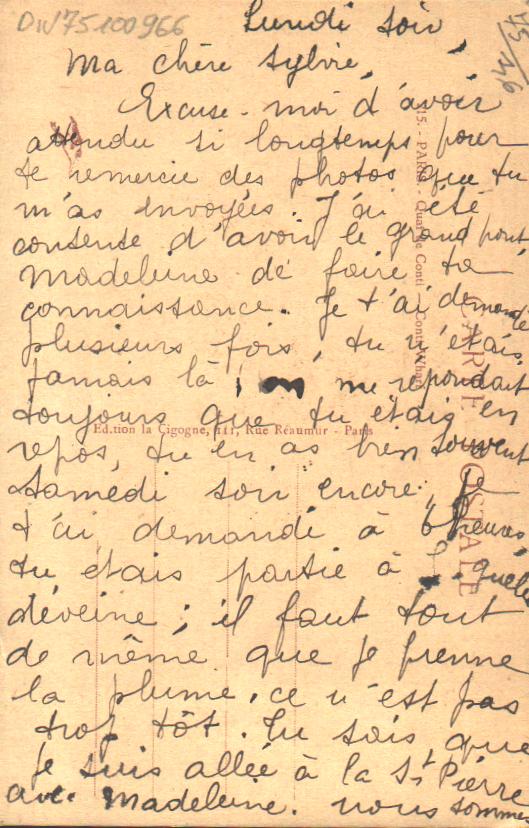 DW75100966
Lundi soir,
45/146
Ma chère Sylvie,
Excuse-moi d'avoir
attendu si longtemps pour
te remercie des photos que tu
m'as envoyées. J'ai été
contente d'avoir le grand pont
Madeleine de faire ta
connaissance. Je t'ai demandé
plusieurs fois, tu n'étais
jamais là, on me répondait
toujours que tu étais en
repos, tu en as bien souvent
Samedi soir encore je
t'ai demandé à 6 heures,
tu étais partie à quelle
déveine ; il faut tout
de même que je prenne
la plume, ce n'est pas
trop tôt. Tu sais que
je suis allée à la St Pierre
avec Madeleine. nous sommes
15. - PARIS - Quai de Conti - Conti Wharf
CARTE POSTALE
Edition la Cigogne, 111, Rue Réaumur - Paris